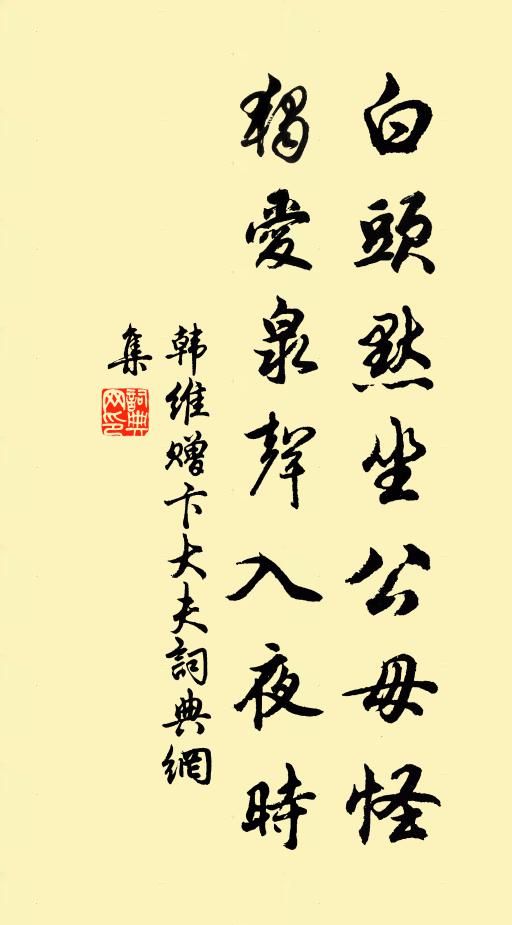 白頭默坐公毋怪
獨愛泉聲入夜時
韩维赠卞大夫詞典網
集
詞典
网印